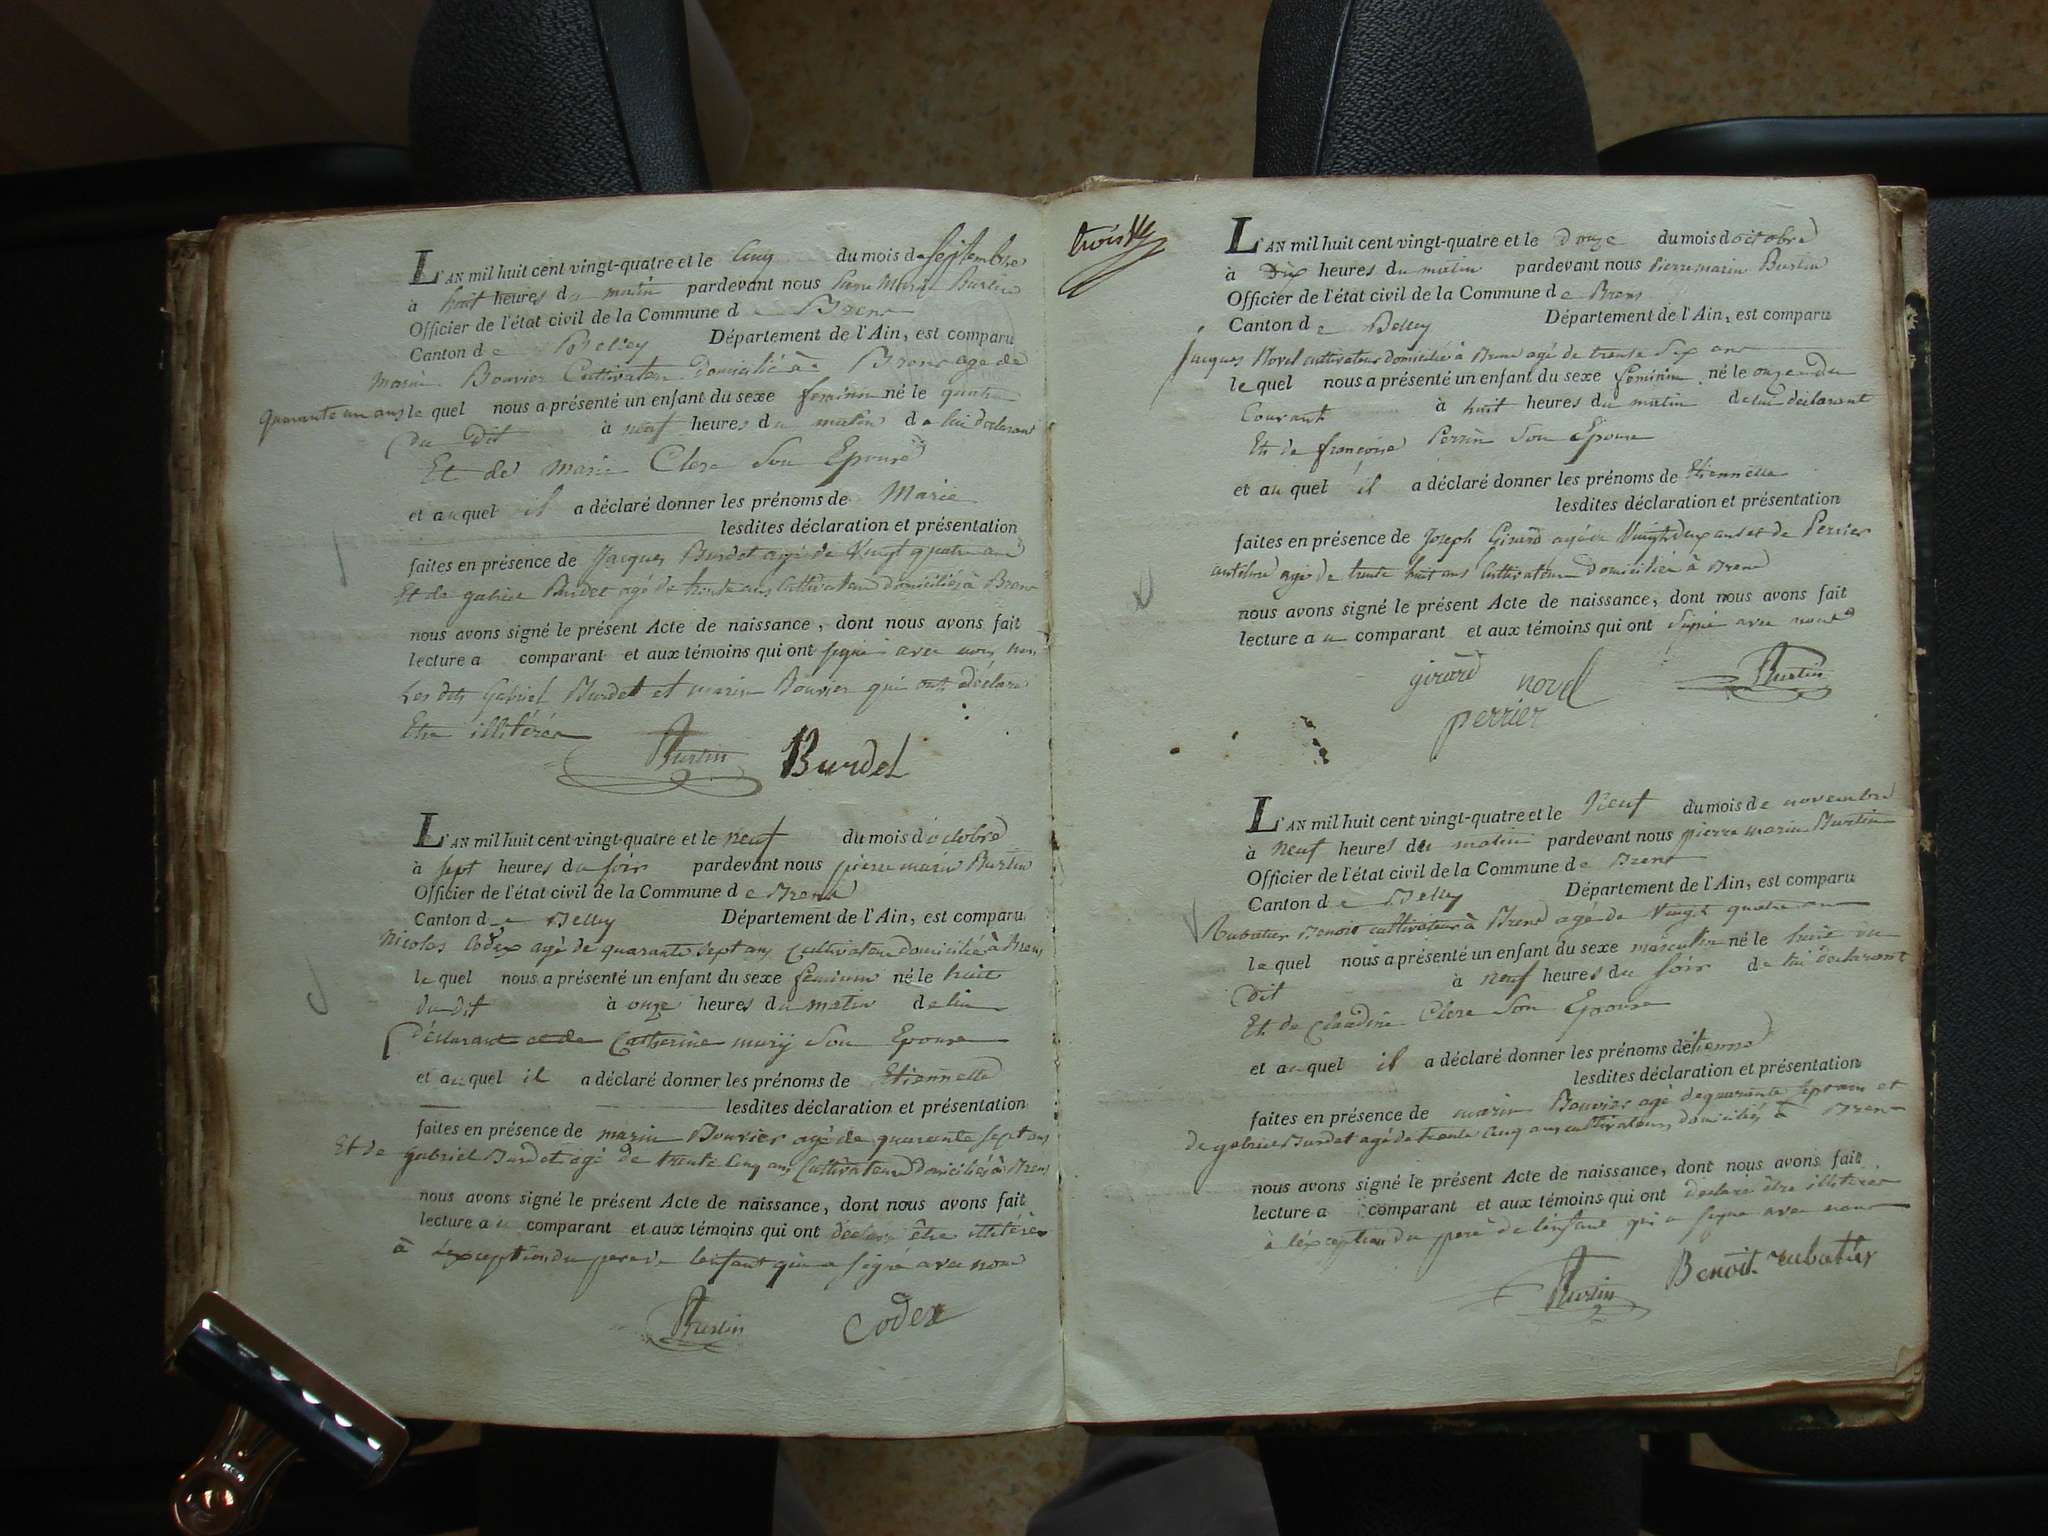 L'AN mil huit cent vingt-quatre et le Cinq du mois de Septembre
à huit heures du matin pardevant nous Pierre Marin Burtin
Officier de l'état civil de la Commune de Brens
Canton de Belley Département de l'Ain, est comparu
Marin Bouvier Cultivateur domicilié à Brens age de
quarante un ans le quel nous a présenté un enfant du sexe feminin né le quatre
du dit à neuf heures du matin de lui declarant
Et de marie Clerc Son Epouse
et auquel il a déclaré donner les prénoms de Marie
lesdites déclaration et présentation
faites en présence de Jacques Burdet agé de Vingt quatre ans
Et de gabriel Burdet agé de trente ans Cultivateurs domiciliés à Brens
nous avons signé le présent Acte de naissance, dont nous avons fait
lecture au comparant et aux témoins qui ont signé avec nous non
Les dits Gabriel Burdet et marin Bouvier qui ont déclaré
Etre illitérés
Burtin Burdet
L'AN mil huit cent vingt-quatre et le neuf du mois d'octobre
à sept heures du soir pardevant nous pierre marin Burtin
Officier de l'état civil de la Commune de Brens
Canton de Belley Département de l'Ain, est comparu
Nicolas Codex agé de quarante sept ans Cultivateur domicilié à Brens
le quel nous a présenté un enfant du sexe feminin né le huit
du dit à onze heures du matin de lui
déclarant et de Catherine mury Son Epouse
et auquel il a déclaré donner les prénoms de Etiennette
lesdites déclaration et présentation
faites en présence de marin Bouvier agé de quarante sept ans
Et de gabriel Burdet agé de trente Cinq ans Cultivateurs domiciliés à Brens
nous avons signé le présent Acte de naissance, dont nous avons fait
lecture au comparant et aux témoins qui ont déclaré être illitérés
à L'exception du pere de l'enfant qui a signé avec nous
Burtin Codex
trois
L'AN mil huit cent vingt-quatre et le douze du mois d'octobre
à Dix heures du matin pardevant nous Pierre marin Burtin
Officier de l'état civil de la Commune de Brens
Canton de Belley Département de l'Ain, est comparu
Jacques Novel cultivateur domicilié à Brens agé de trente Six ans
le quel nous a présenté un enfant du sexe feminin né le onze du
Courant à huit heures du matin de lui déclarant
Et de françoise Perrin Son Epouse
et auquel il a déclaré donner les prénoms de Etiennette
lesdites déclaration et présentation
faites en présence de Joseph Girard agé de Vingt deux ans et de Perrier
anthelme agé de trente huit ans Cultivateurs domiciliés à Brens
nous avons signé le présent Acte de naissance, dont nous avons fait
lecture au comparant et aux témoins qui ont Signé avec nous
girard novel Burtin
perrier
L'AN mil huit cent vingt-quatre et le Neuf du mois de novembre
à neuf heures du matin pardevant nous pierre marin Burtin
Officier de l'état civil de la Commune de Brens
Canton de Belley Département de l'Ain, est comparu
Rubatier Benoit cultivateur à Brens agé de Vingt quatre ans
le quel nous a présenté un enfant du sexe masculin né le huit du
dit à neuf heures du soir de lui déclarant
Et de Claudine Clerc Son Epouse
et auquel il a déclaré donner les prénoms d'étienne
lesdites déclaration et présentation
faites en présence de marin Bouvier agé de quarante Sept ans et
de gabriel Burdet agé de trente Cinq ans cultivateurs domiciliés à Brens
nous avons signé le présent Acte de naissance, dont nous avons fait
lecture a comparant et aux témoins qui ont déclaré être illitérés
à l'éxception du pere de l'enfant qui a signé avec nous
Burtin Benoit Rubatier